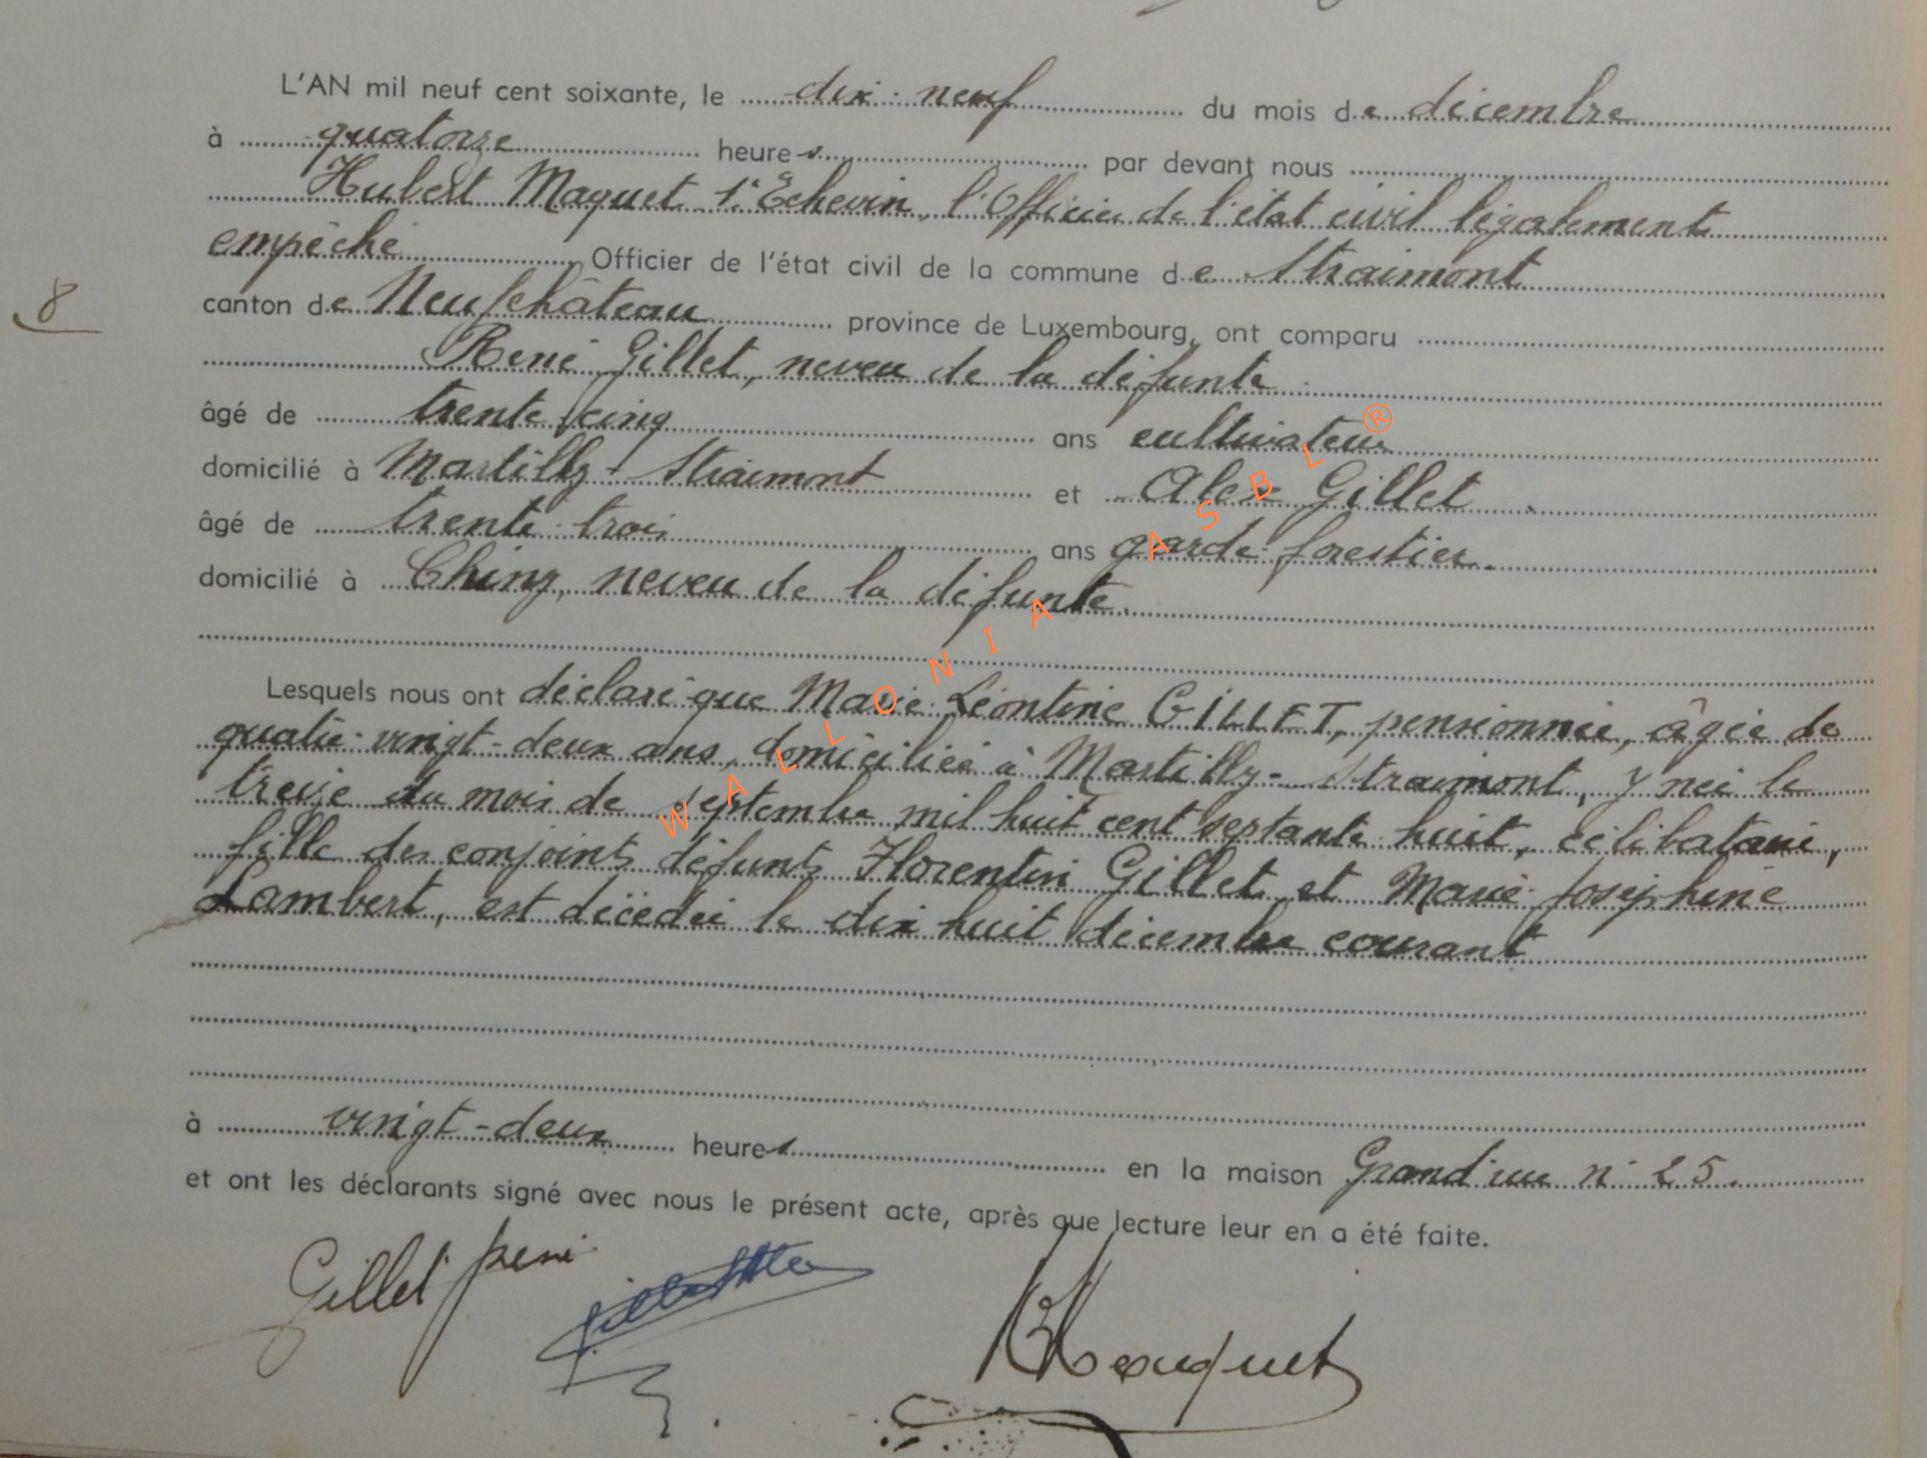 L'AN mil neuf cent soixante, le dix-neuf du mois de décembre
à quatorze heures par devant nous
Hubert Maquet 1er Echevin, l'Officier de l'état civil légalement
empêché Officier de l'état civil de la commune de Straimont
canton de Neufchâteau province de Luxembourg, ont comparu
8
René Gillet, neveu de la défunte
âgé de trente cinq ans cultivateur
domicilié à Martilly-Straimont et Alex Gillet.
âgé de trente-trois ans garde-forestier.
domicilié à Chiny, neveu de la défunte.
Lesquels nous ont déclaré que Marie-Léontine GILLET, pensionnée, âgée de
quatre-vingt-deux ans, domiciliée à Martilly-Straimont, y née le
treize du mois de septembre mil huit cent septante huit, célibataire,
fille des conjoints défunts Florentin Gillet et Marie-Joséphine
Lambert, est décédée le dix huit décembre courant
à vingt-deux heures en la maison Grand'rue n° 25.
et ont les déclarants signé avec nous le présent acte, après que lecture leur en a été faite.
Gillet René
HMaquet
WALLONIA ASBL ®